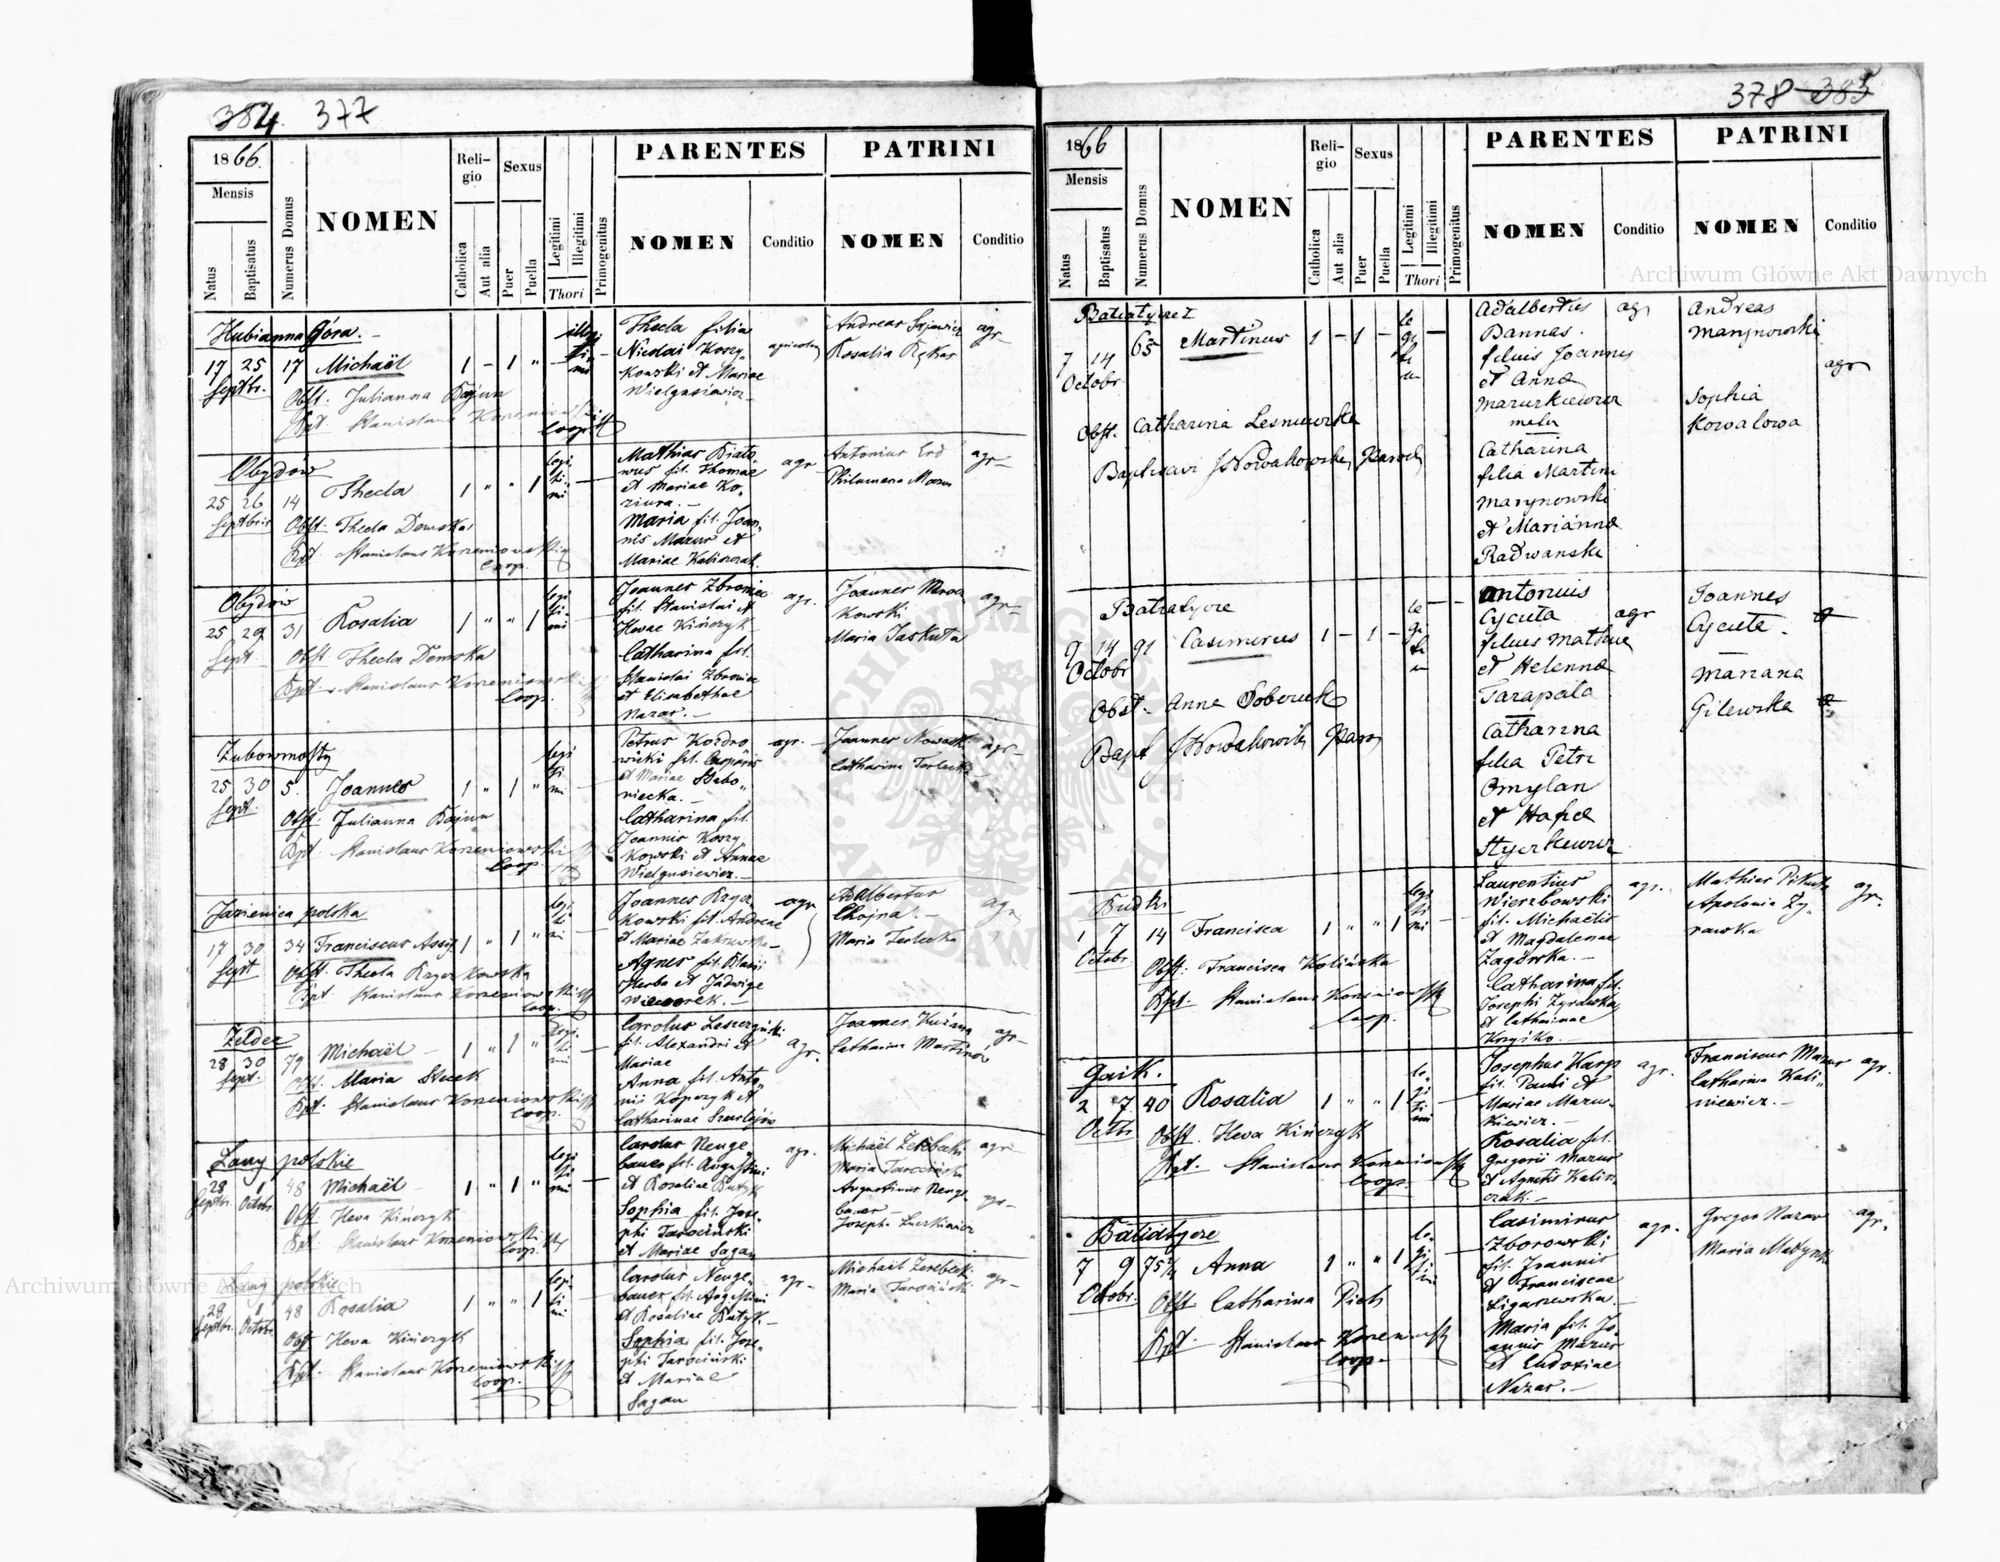 384. 377
1866.
Mensis
Natus
Baptisatus
Numerus Domus
NOMEN
Reli-
gio
Catholica
Aut alia
Sexus
Puer
Puella
Legitimi
Illegitimi
Thori
Primogenitus
PARENTES
NOMEN
Conditio
PATRINI
NOMEN
Conditio
Hubianna Góra. -
17 25 17 Michaël 1 - 1 "
Septbr.
Obst. Julianna Bajun
Bpt. Stanislaus Korzeniowski
coop.
illegi
ti
mi
Thecla filia
Nicolai Koszy
kowski et Mariae
Wielgusiewicz
agricolae
Andreas
agr
Rosalia
Obydów
25 26 14 Thecla 1 " " 1
Septbris
Obst. Thecla Demska
Bpt. Stanislaus Korzeniowski
coop.
legi
ti
mi
Mathias Biało
wus fil. Thomae
et Mariae Ko
ziura. -
Maria fil. Joan
nis Mazur et
Mariae Kaliszczak.
agr
Antonius Erd
agr
Philumena Mazur
Obydów
25 29 31 Rosalia 1 " " 1
Sept.
Obst Thecla Demska
Bpt. Stanislaus Korzeniowski
coop.
legi
ti
mi
Joannes Zbroniec
fil. Stanislai et
Hevae Kińczyk
Catharina fil.
Stanislai Zbroniec
et Elisabethae
Nazar. -
agr.
Joannes
kowski
agr
Maria Jaskuta
Zubowmosty
25 30 5. Joannes 1 " 1 "
Sept.
Obst. Julianna Bajun
Bpt. Stanislaus Korzeniowski
coop.
legi
ti
mi
Petrus Kordro
wicki fil. Casparis
et Mariae Szabo
niecka. -
Catharina fil.
Joannis Koszy
kowski et Annae
Wielgusiewicz. -
agr.
Joannes Nowacki
agr
Catharina Terlecka
Jazienica polska
17 30 34 Franciscus Assyz 1 " 1 "
Sept
Obst. Thecla Krzyżkowska
Bpt. Stanislaus Korzeniowski
coop.
legi
ti
mi
Joannes Krzyż
kowski fil. Andreae
et Mariae Zakrzewska
Agnes fil. Blasii
Herba et Jadwigae
Wieczorek. -
agr
Adalbertus
Chojna. -
agr
Maria Terlecka
Zeldec
28 30 79 Michaël 1 " 1 "
Sept.
Obst. Maria Stecek
Bpt. Stanislaus Korzeniowski
coop.
legi
ti
mi
Carolus Leszczyński
fil. Alexandri et
Mariae
Anna fil. Anto
nii Kopczyk et
Catharinae Szurlejów
agr.
Joannes Kuźma
agr
Catharina Martinów
Lany polskie
28 1 48 Michaël 1 " 1 "
Septbr. Octobr.
Obst Heva Kińczyk
Bpt. Stanislaus Korzeniowski
coop.
legi
ti
mi
Carolus Neuge
bauer fil. Augustini
et Rosaliae Butyk
Sophia fil. Jose
phi Tarociński
et Mariae Sagan
agr.
Michaël Zerebecki
agr
Maria Tarocińska
Augustinus Neuge
bauer
agr
Joseph.
Lany polskie
28 1 48 Rosalia 1 " " 1
Septbr. Octobr.
Obst Heva Kińczyk
Bpt. Stanislaus Korzeniowski
coop.
legi
ti
mi
Carolus Neuge
bauer fil. Augustini
et Rosaliae Butyk. -
Sophia fil. Jose
phi Tarociński
et Mariae
Sagan
agr
Michaël Zerebecki
agr
Maria Tarocińska
378 385
1866
Mensis
Natus
Baptisatus
Numerus Domus
NOMEN
Reli-
gio
Catholica
Aut alia
Sexus
Puer
Puella
Legitimi
Illegitimi
Thori
Primogenitus
PARENTES
NOMEN
Conditio
PATRINI
NOMEN
Conditio
Batiatycze
7 14 65 Martinus 1 - 1 -
Octobr
Obst. Catharina Lesniewska
Baptisavi JNowakowski Paroch
le
gi
ti
m
Adalbertus
Bannas.
filius Joannis
et Anna
Mazurkiewicz
Catharina
filia Martini
Marynowski
et Marianna
Radwanski
agr
Andreas
Marynowski
agr
Sophia
Kowalowa
Batiatycze
9 14 91 Casimirus 1 - 1 -
Octobr
Obst. Anna Soboreck
Bapt JNowakowski Paro
le
gi
ti
m
Antonius
Cycuta
filius Mathiae
et Helenna
Tarapata
Catharina
filia Petri
Omylan
et Hafia
Styerkewicz
agr
Joannes
Cycuta -
Mariana
Gilewska
Budki
1 7 14 Francisca 1 " " 1
Octobr.
Obst. Francisca Kolińska
Bpt. Stanislaus Korzeniowski
coop.
legi
ti
mi
Laurentius
Wierzbowski
fil. Michaëlis
et Magdalenae
Zagórska. -
Catharina fil.
Josephi Zyrawska
et Catharinae
agr.
Mathias Pikuta
agr.
Apolonia Zy
rawka
Gaik.
2 7. 40 Rosalia 1 " " 1
Octbr
Obst. Heva Kińczyk
Bpt. Stanislaus Korzeniowski
coop.
le
gi
ti
mi
Josephus Karp
fil. Pauli et
Mariae Mazur
kiewicz. -
Rosalia fil.
Gregorii Mazur
et Agnetis Kalisz
czak. -
agr.
Franciscus Mazur
agr.
Catharina Kali
niewicz. -
Batiatycze
7 9 75 1/4 Anna 1 " " 1
Octobr.
Obst Catharina Piech
Bpt. Stanislaus Korzeniowski
coop.
le
gi
ti
mi
Casimirus
Zborowski
fil. Joannis
et Franciscae
Ligaszewska.
Maria fil. Jo
annis Mazur
et Eudoxiae
Nazar. -
agr.
Gregor Nazar
agr.
Maria
Archiwum Główne Akt Dawnych
Archiwum Główne Akt Dawnych
ARCHIWUM GŁÓWNE
AKT DAWNYCH